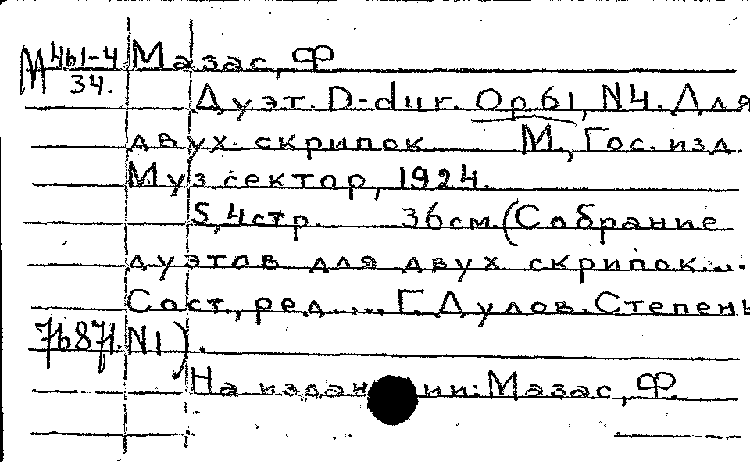 М 461-4 Мазас, Ф
34.
Дуэт. D-dur. Op.61, N4. Для
двух скрипок М., Гос. изд.
Муз.сектор, 1924.
5,4стр. 36см.(Собрание
дуэтов для двух скрипок...
Сост., ред..... Г. Дулов. Степень
N1).
На издании: Мазас, Ф.